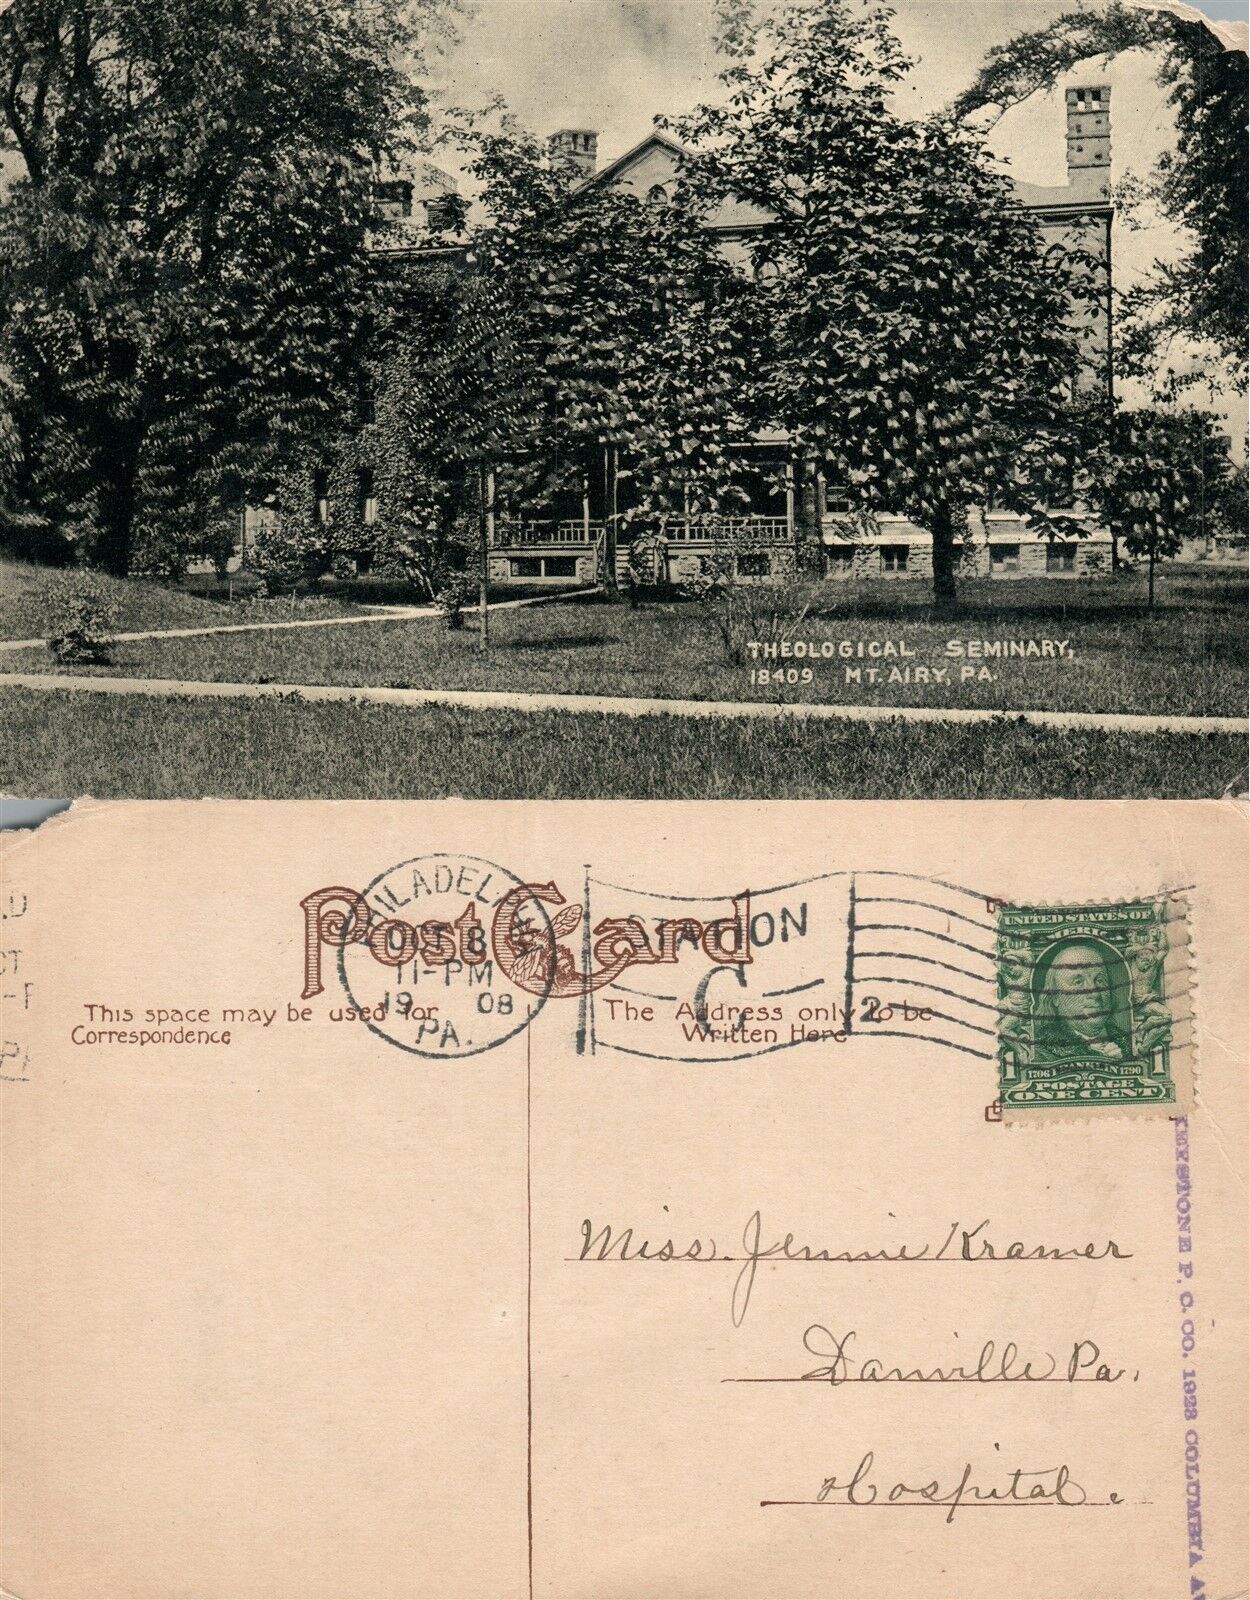 THEOLOGICAL SEMINARY,
18409 MT. AIRY, PA.
Post Card
PHILADELPHIA
OCT 8
11-PM
19 08
PA.
STATION
C
2
This space may be used for
Correspondence
The Address only to be
Written Here
UNITED STATES OF
AMERICA
1706 FRANKLIN 1790
1 1
POSTAGE
ONE CENT
Miss. Jennie Kramer
Danville Pa.
Hospital.
KEYSTONE P. C. CO. 1928 COLUMBIA